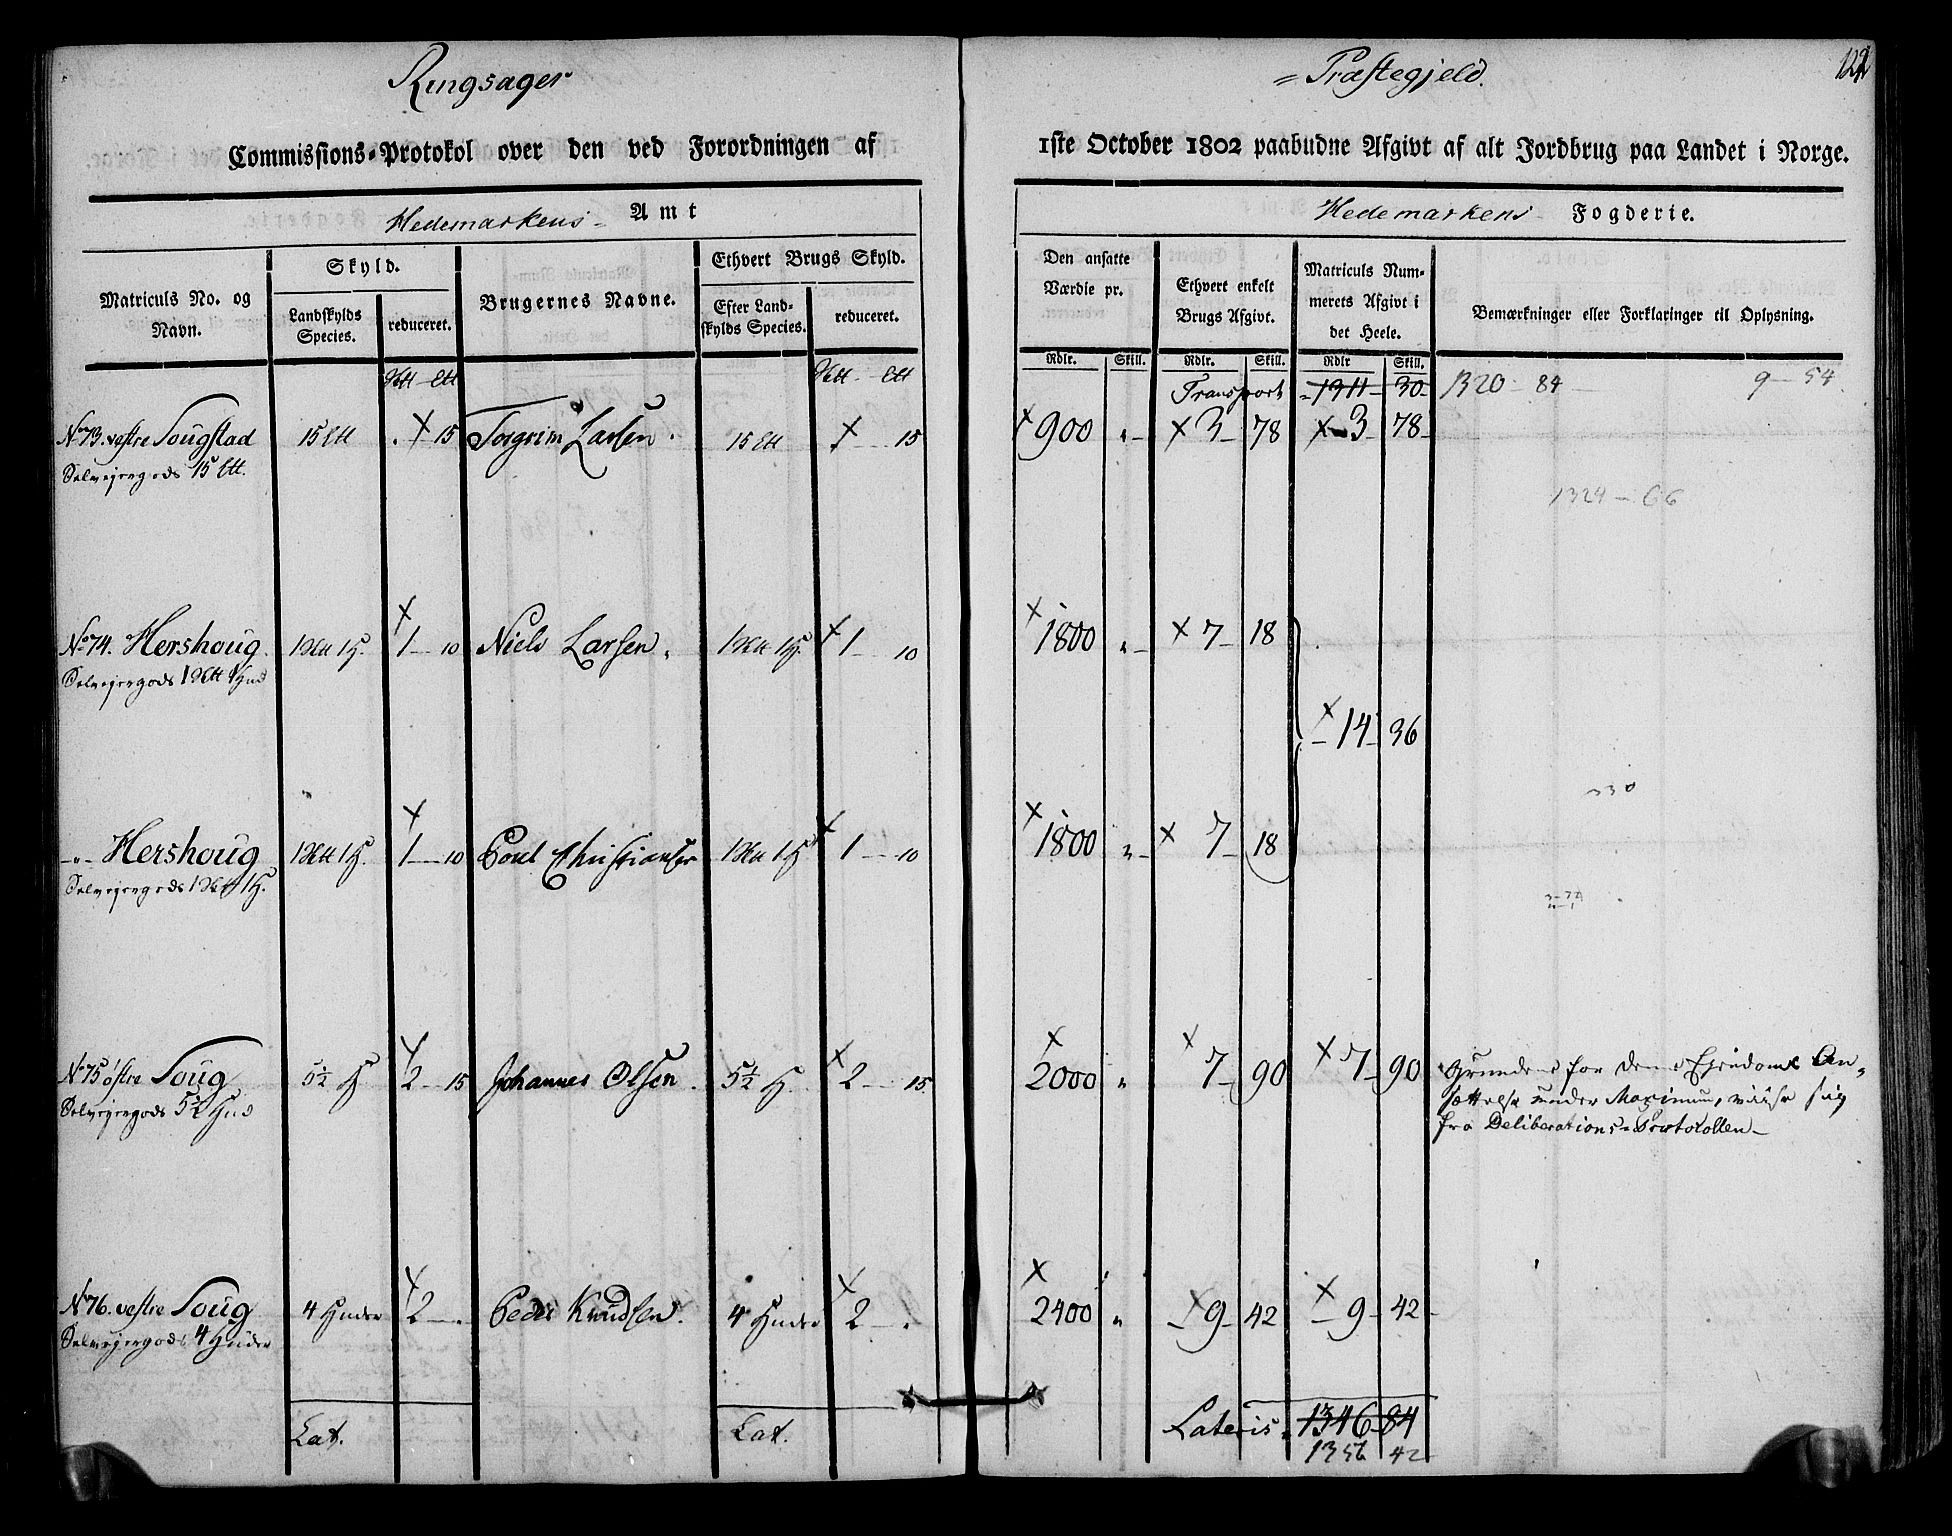 Ringsager
= Præstegjeld.
122
Commissions-Protokol over den ved Forordningen af
1ste October 1802 paabudne Afgivt af alt Jordbrug paa Landet i Norge.
Hedemarkens Amt
Hedemarkens Fogderie.
Matriculs No. og Navn.
Skyld.
Landskylds Species.
reduceret.
Brugernes Navne.
Ethvert Brugs Skyld.
Efter Landskylds Species.
reduceret.
Den ansatte Værdie pr.
Rdlr. Skill.
Ethvert enkelt Brugs Afgivt.
Rdlr. Skill.
Matriculs Nummerets Afgivt i det Heele.
Rdlr Skill.
Bemærkninger eller Forklaringer til Oplysning.
Transport 1311 30 1320 84 9 - 54
No 73. vestre Sougstad 15 15 Torgrim Larsen. 15 15 900 " 3 78 3 78
Selveiergods 15
1324 - 66
No 74. Hershoug 1 1 H. 1 - 10 Niels Larsen. 1 1 H. 1 - 10 1800 " 7 - 18
Selveiergods 1 1 Hud
14 - 36
330
- " - Hershoug 1 1 H. 1 - 10 Poul Christiansen 1 1 H 1 - 10 1800 " 7 - 18
Selveiergods 1 1 H.
No 75 østre Soug 5½ H 2 - 15 Johannes Olsen. 5½ H. 2 - 15 2000 " 7 - 90 7 - 90 Grundene for denne Eiendoms An-
Selveiergods 5½ Hud
sættelse under Maximum, viise sig
fra Deliberations-Protokollen -
No 76. vestre Soug 4 Huder 2 - . Peder Knudsen. 4 Huder 2 - . 2400 " 9 - 42 9 - 42
Selveiergods 4 Huder
Lat. Lat. Lateris 1346 84
1356 42